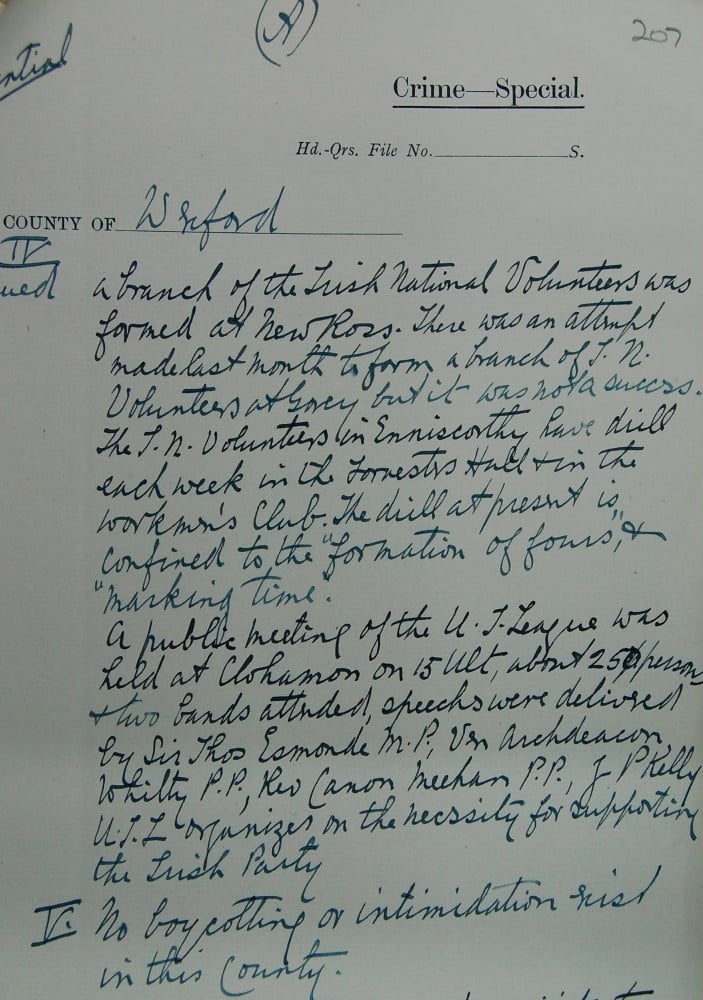 (A)
207
ential
Crime—Special.
Hd.-Qrs. File No. S.
COUNTY OF Wexford
IV
ued
a branch of the Irish National Volunteers was
formed at New Ross. There was an attempt
made last month to form a branch of I. N.
Volunteers at Gorey but it was not a success.
The I. N. Volunteers in Enniscorthy have drill
each week in the Forresters Hall & in the
workmen's Club. The drill at present is
confined to the "formation of fours", &
"marking time".
A public meeting of the U. I. League was
held at Clohamon on 15 Ult, about 250 person
& two bands attended, speechs were delivered
by Sir Thos Esmonde M.P., Ven Archdeacon
Whitty P.P., Rev Canon Meehan P.P., J P Kelly
U.I.L organizer on the necessity for supporting
the Irish Party
V. No boycotting or intimidation exist
in this County.